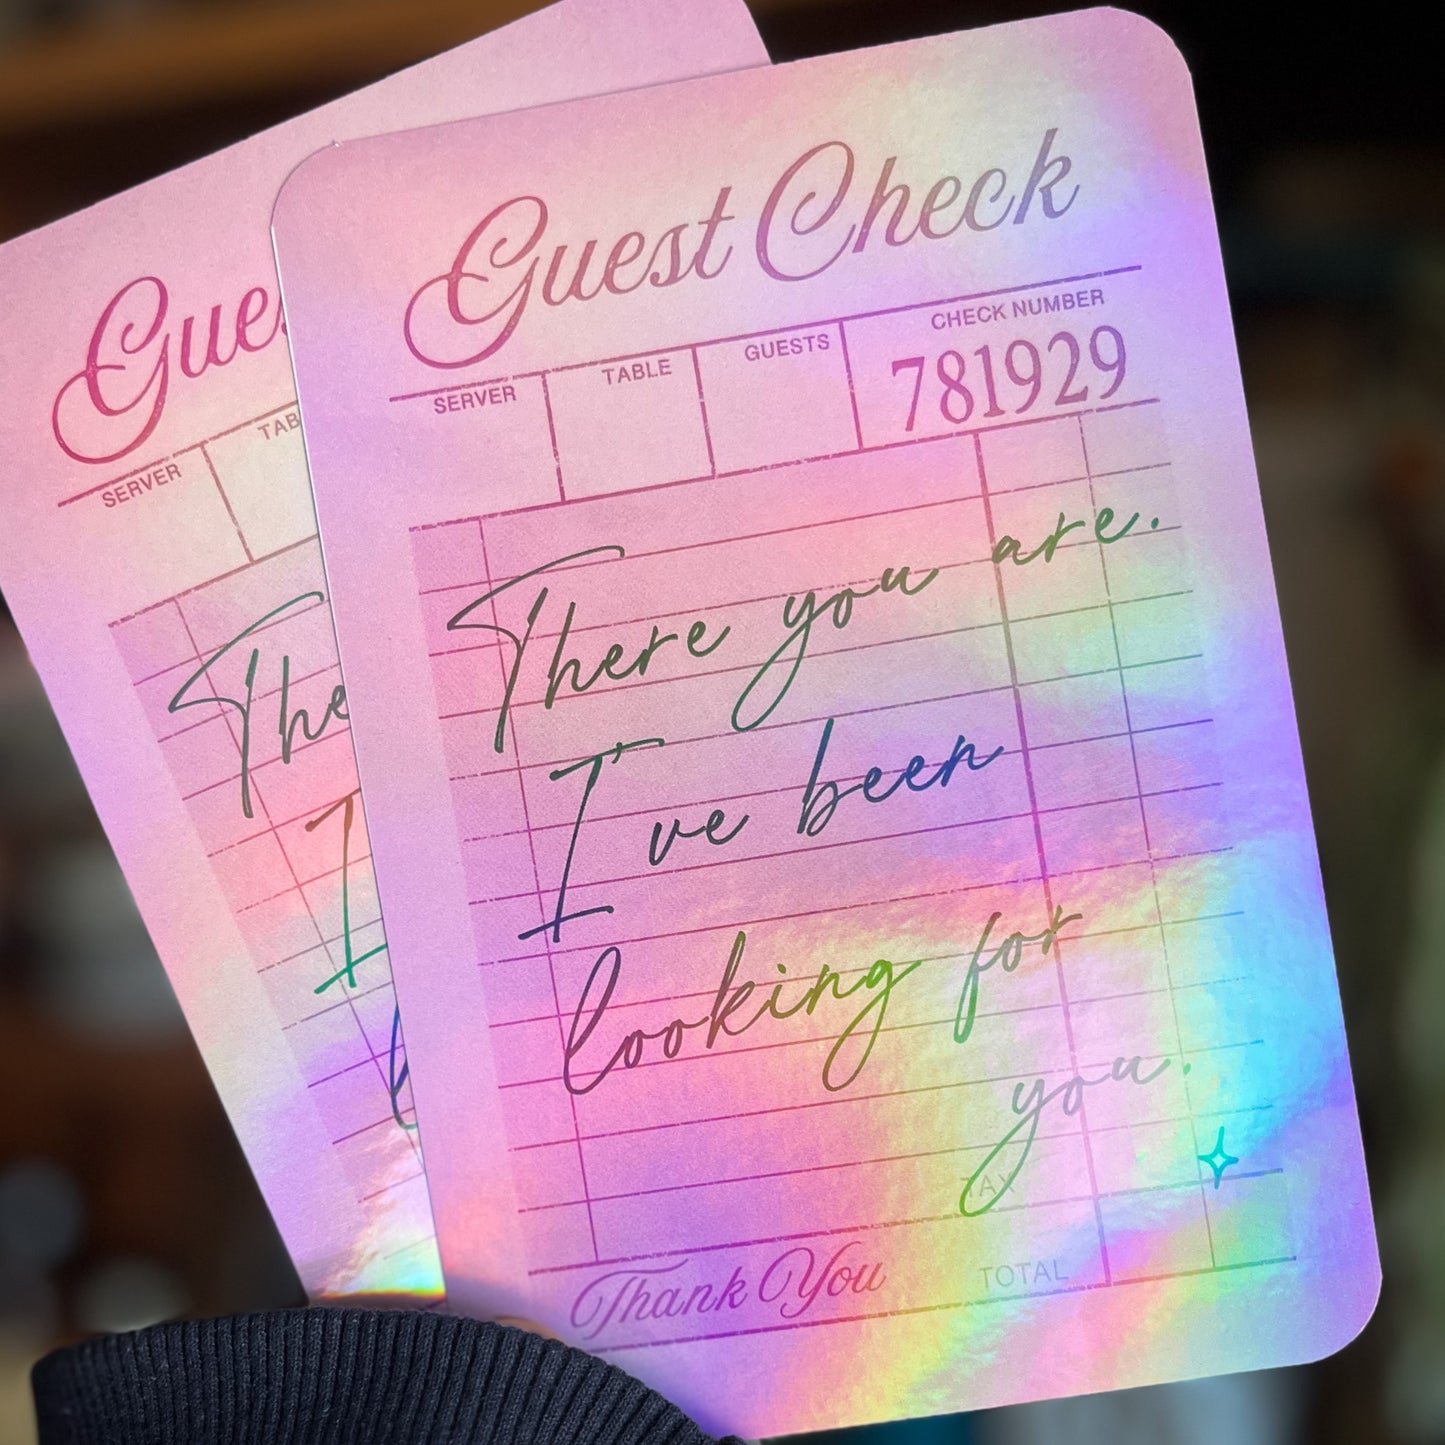 Guest Check
SERVER TABLE GUESTS CHECK NUMBER
781929
There you are.
I've been
looking for
you.
TAX
Thank You TOTAL
Gues
SERVER TAB
The
I